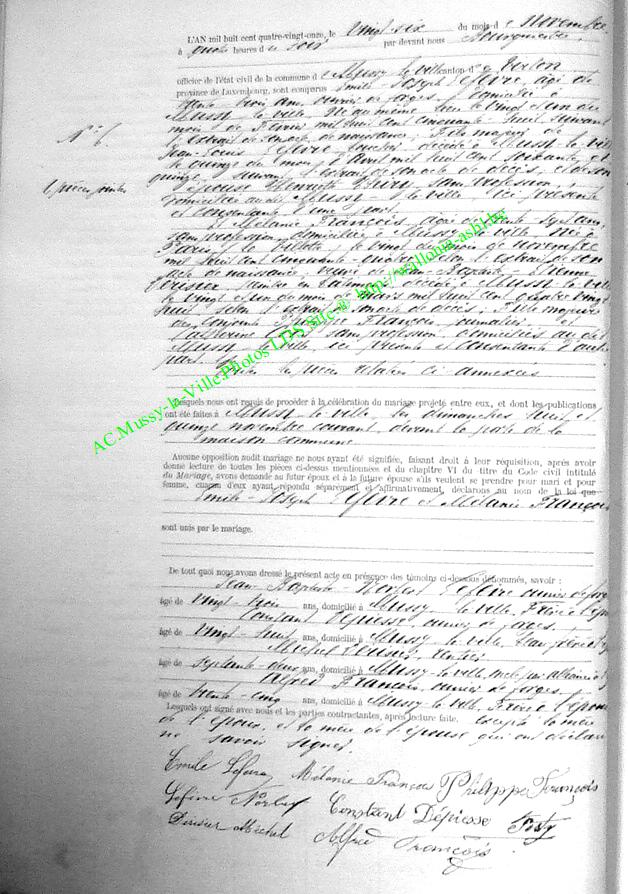 L'AN mil huit cent quatre-vingt-onze, le vingt six du mois de Novembre
à quatre heures du soir par devant nous
officier de l'état civil de la commune de Mussy la ville canton de Virton
province de Luxembourg, sont comparus Emile Joseph Lefèvre, âgé de
trente trois ans, ouvrier de forges, domicilié à
Mussy la ville, né au même lieu le vingt et un du
mois de Février mil huit cent cinquante huit suivant
l'extrait de son acte de naissance; fils majeur de
N° 6.
Jean Louis Lefèvre décédé à Mussy la ville
le quinze du mois d'Avril mil huit cent soixante et
quinze, suivant l'extrait de son acte de décès, et de son
épouse Henriette sans profession,
domiciliée au dit Mussy la ville, ici présente
et consentante d'une part.
pièces jointes
Et Mélanie François, âgée de trente sept ans,
sans profession, domiciliée à Mussy la ville née à
Paris, la Villette, le vingt du mois de novembre
mil huit cent cinquante quatre selon l'extrait de son
acte de naissance; veuve de Jean Baptiste
décédé à Mussy la ville
le vingt et un du mois de mars mil huit cent quatre vingt
huit, selon l'extrait de son acte de décès; fille majeure
des conjoints Philippe François, journalier et
Catherine sans profession, domiciliés au dit
Mussy la ville, ici présents et consentants d'autre
part.
les pièces ci annexées
AC.Mussy-la-Ville.Photos LDS Site @ http://wallonia-asbl.be
Lesquels nous ont requis de procéder à la célébration du mariage projeté entre eux, et dont les publications
ont été faites à Mussy la ville les dimanches huit et
quinze novembre courant, devant la porte de la
maison commune
Aucune opposition audit mariage ne nous ayant été signifiée, faisant droit à leur réquisition, après avoir
donné lecture de toutes les pièces ci-dessus mentionnées et du chapitre VI du titre du Code civil intitulé
du Mariage, avons demandé au futur époux et à la future épouse s'ils veulent se prendre pour mari et pour
femme, chacun d'eux ayant répondu séparément et affirmativement, déclarons au nom de la loi que
Emile Joseph Lefèvre et Mélanie François
sont unis par le mariage.
De tout quoi nous avons dressé le présent acte en présence des témoins ci-dessous dénommés, savoir :
Jean Baptiste Norbert Lefèvre ouvrier de forges
âgé de vingt trois ans, domicilié à Mussy la ville, Frère à l'époux
Constant Dépiesse, ouvrier de forges,
âgé de vingt huit ans, domicilié à Mussy la ville,
Michel rentier
âgé de septante deux ans, domicilié à Mussy la ville, oncle par alliance
Alfred François, ouvrier de forges
âgé de trente cinq ans, domicilié à Mussy la ville, Frère à l'épouse
Lesquels ont signé avec nous et les parties contractantes, après lecture faite. Excepté la mère
de l'époux, et la mère de l'épouse qui ont déclaré
ne savoir signer.
Emile Lefèvre Mélanie François Philippe François
Lefèvre Norbert Constant Dépiesse
Michel Alfred François